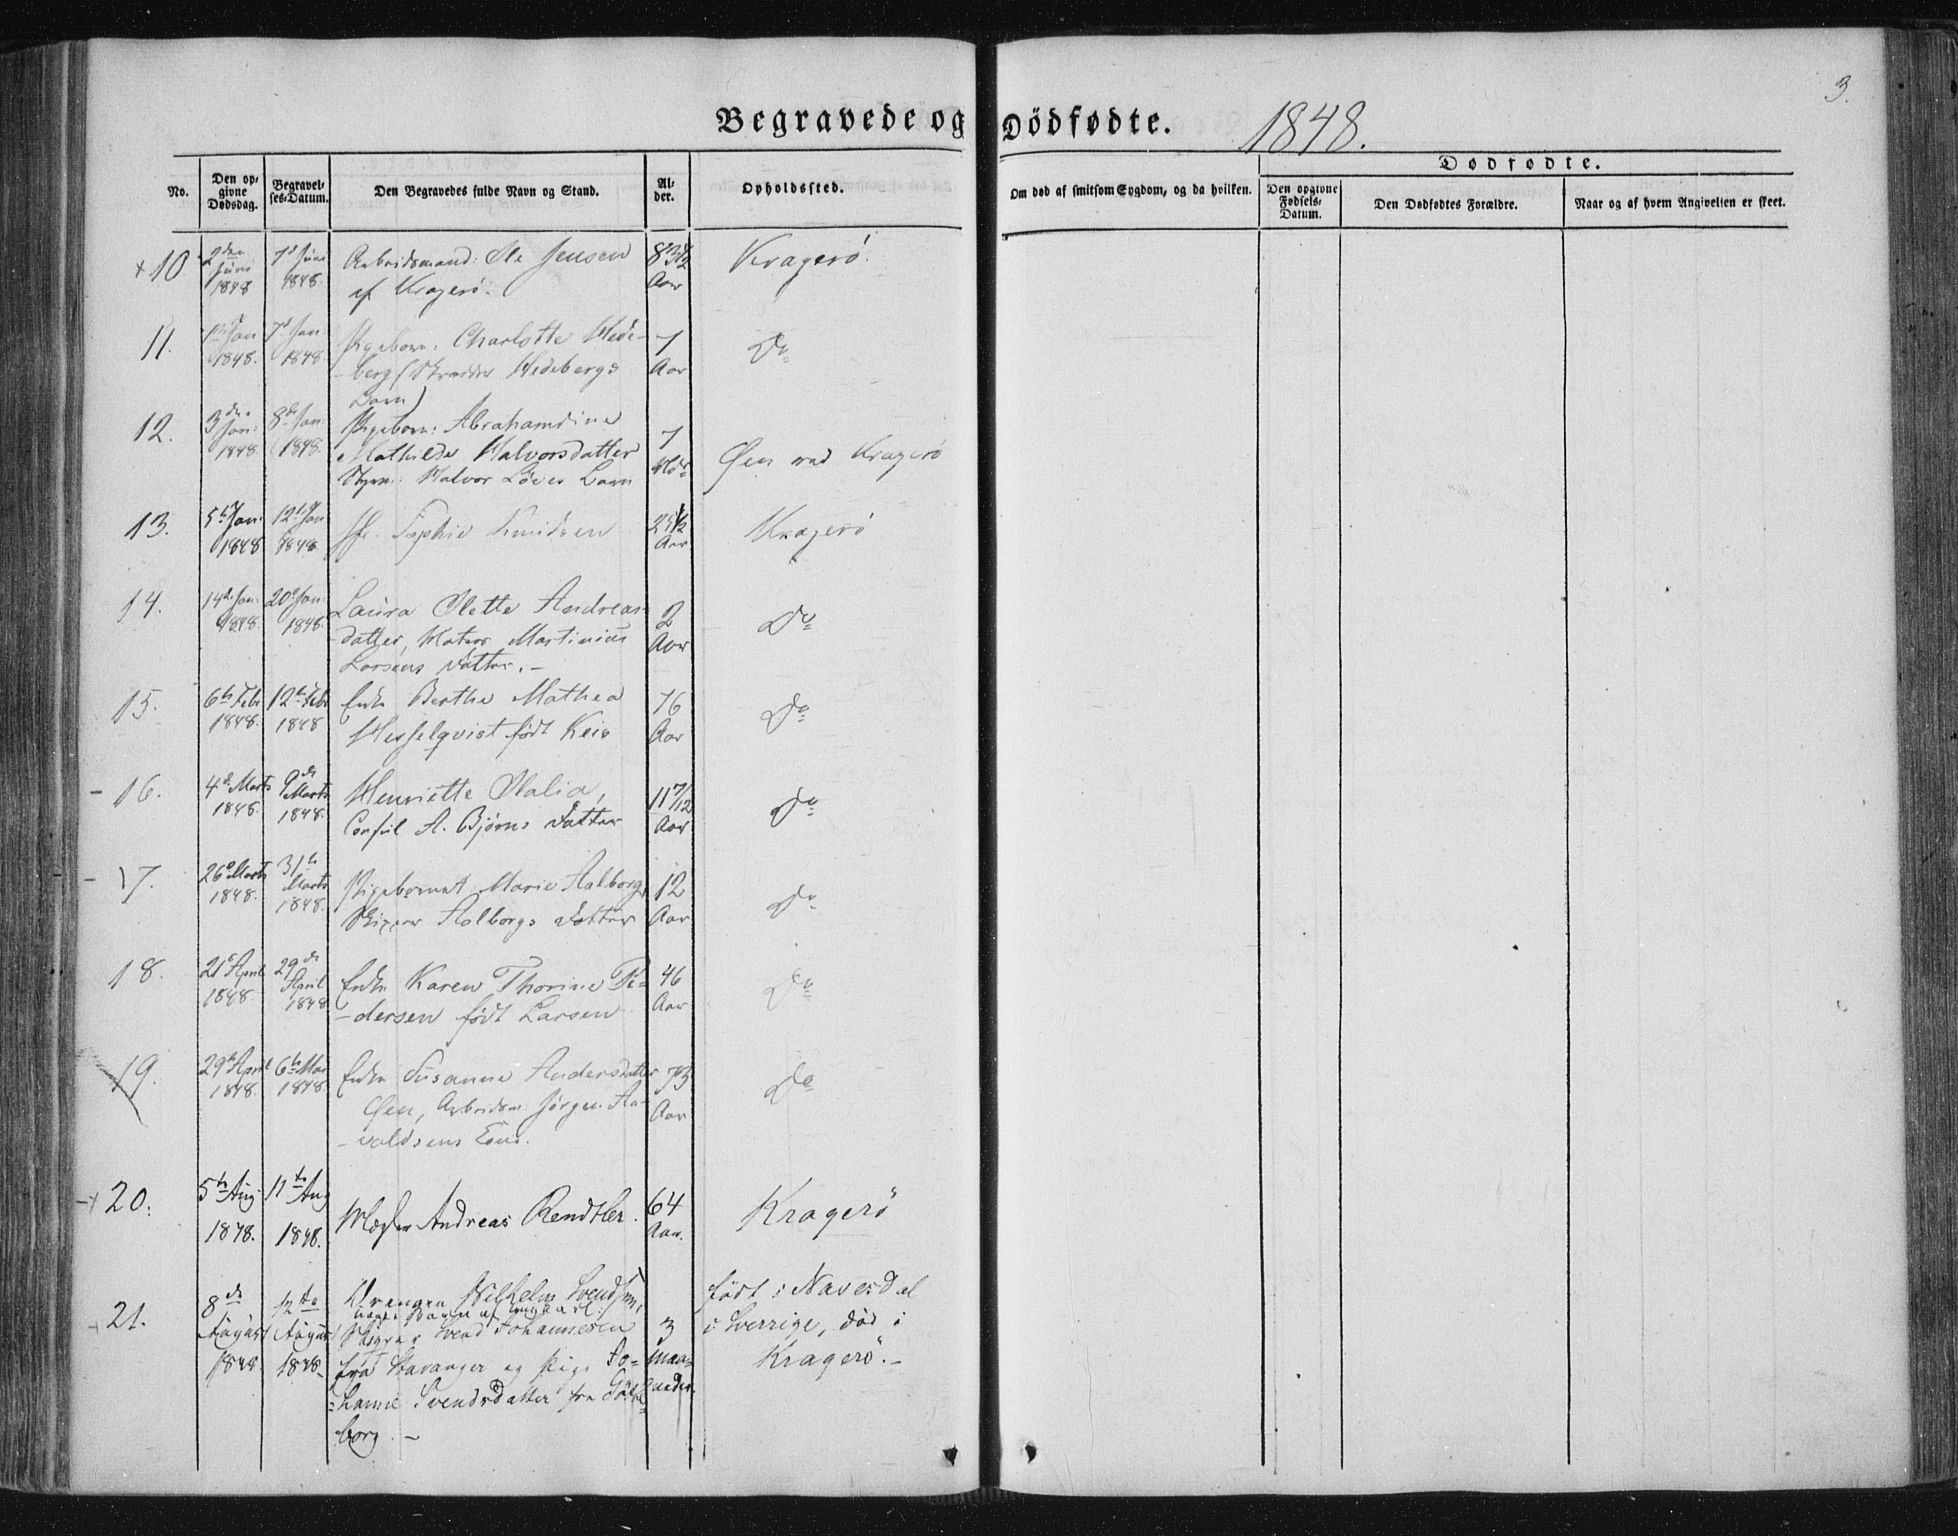 3.
Begravede og Dödfødte. 1848.
Dødfødte.
No.
Den opgivne Dødsdag.
Begravelses-Datum.
Den Begravedes fulde Navn og Stand.
Alder.
Opholdssted.
Om død af smitsom Sygdom, og da hvilken.
Den opgivne Fødsels-Datum.
Den Dødfødtes Forældre.
Naar og af hvem Angivelsen er skeet.
+ 10 2den Juni 1848 7d Juni 1848. Arbeidsmand: Ole Jensen 83½ Aar Kragerö.
af Kragerö.
11. Jan 1848. 7d Jan 1848. Pigebarn: Charlotte Hede- 7 Aar Do
berg (Skrædder Hedebergs
Barn)
12. 3die Jan: 1848. 8de Jan 1848. Pigebarn: Abrahamdine 7
Mathilde Halvorsdatter Øen ved Kragerö
Styrm: Halvor Löves Barn
13. 5te Jan. 1848 12te Jan 1848. Sophie Knudsen Aar Kragerö
14. 14de Jan. 1848. 20de Jan. 1848. Laura Olette Andreas- 2 Aar Do
datter, Matros Martinius
Larsens Datter. -
15. 6te Feb. 1848. 12te Feb 1848 Enke Berthe Mathea 76 Aar Do
Hesselqvist født Keis
- 16. 4de Marts 1848. 9de Marts 1848. Henriette Italia, 11 7/12 Aar Do
Consul A. Bjørns Datter
- 17. 26de Marts 1848. 31te Marts 1848. Pigebarnet Marie Aalborg, 12 Aar Do
Skipper Aalborgs Datter
18. 21de April 1848. 29de April 1848. Enke Karen Thorine Pe- 46 Aar Do
-dersen født Larsen
19. 29de April 1848. 6te Mai 1848. Enke Susanne Andersdatter 73 Aar Do
Øen, Arbeidsm Jörgen Aa-
-valdsens
-+ 20. 5te Aug. 1848. 11te Aug 1848. Mægler Andreas Rendtler. 64 Aar. Kragerö
21. 8de August 1848. 12te August 1848. Drengen Wilhelm Svendsen, 3 født i Navesdal
uægte Barn af
Svend Johannesen i Sverrige, död i
fra Stavanger og Pige Jo- Maa- Kragerö. -
-hanne Svendsdatter fra Göthe- neder
borg. -